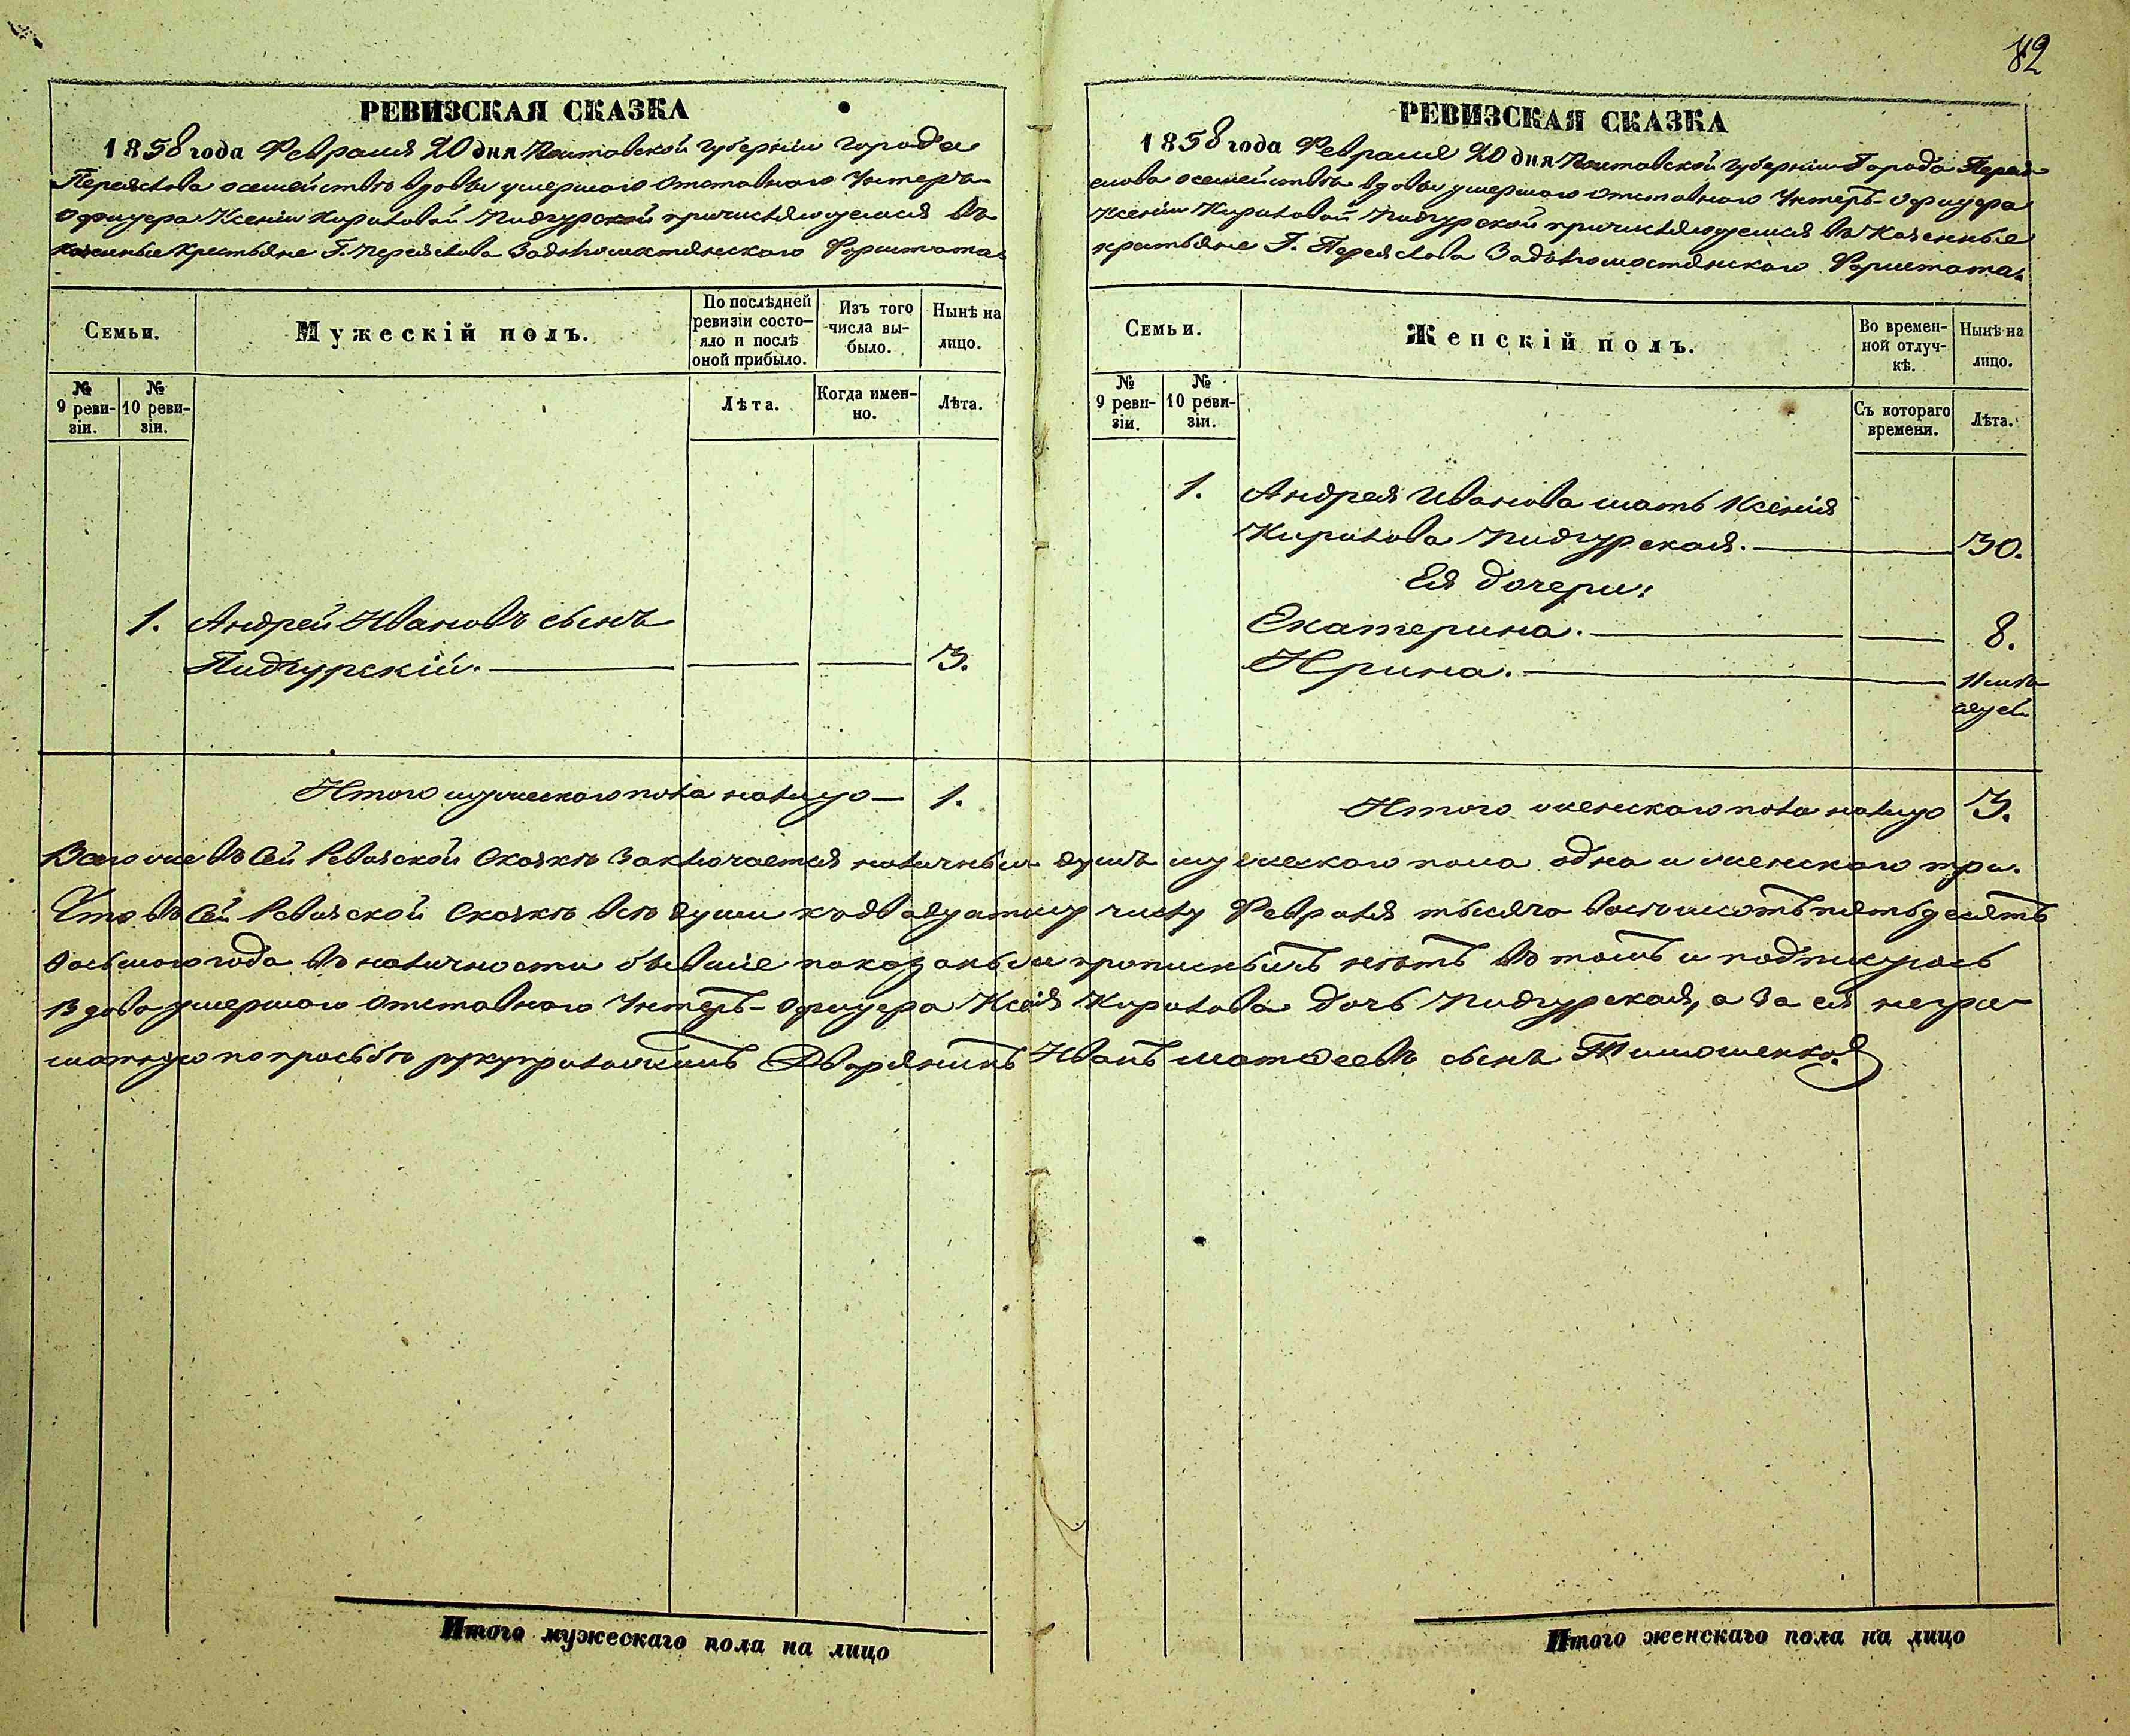 82
РЕВИЗСКАЯ СКАЗКА
1858 года Февраля 20 дня Полтавской Губерніи Города
Переяслова о семействѣ вдовы умершаго Отставного Унтеръ-
Офицера Ксеніи Кириловой Пидгурской причисляющемся въ
казенные Крестьяне Г. Переяслова Задолгомостянского Форштата.
Семьи.
Мужескій полъ.
По послѣдней
ревизіи состо-
яло и послѣ
оной прибыло.
Изъ того
числа вы-
было.
Нынѣ на
лицо.
№
9 реви-
зіи.
№
10 реви-
зіи.
Лѣта.
Когда имен-
но.
Лѣта.
1. Андрей Ивановъ сынъ
Пидгурскій. 3.
Итого мужескаго пола налицо — 1.
РЕВИЗСКАЯ СКАЗКА
1858 года Февраля 20 дня Полтавской Губерніи Города Перея-
слова о семействѣ вдовы умершаго Отставного Унтеръ-Офицера
Ксеніи Кириловой Пидгурской причисляющемся въ Казенные
крестьяне Г. Переяслова Задолгомостянского Форштата.
Семьи.
Женскій полъ.
Во времен-
ной отлуч-
кѣ.
Нынѣ на
лицо.
№
9 реви-
зіи.
№
10 реви-
зіи.
Съ котораго
времени.
Лѣта.
1. Андрея Иванова мать Ксенія
Кирилова Пидгурская. 30.
Ея дочери:
Екатерина. 8.
Ирина. 11 мѣ
сяцев.
Итого женскаго пола налицо 3.
Всего же въ сей Ревизской Сказкѣ Заключается наличныхъ душъ мужескаго пола одна и женскаго три.
Что въ сей Ревизской Сказкѣ всѣ души къ двадцатому числу Февраля тысяча восемьсотъ пятьдесятъ
восьмого года въ наличности бывшіе показаны и прописныхъ нѣтъ въ томъ и подпишусь
Вдова умершаго Отставного Унтеръ-Офицера Ксенія Кирилова дочь Пидгурская, а За ея негра-
мотную по просьбѣ рукуприложилъ Дворянинъ Иванъ Матвеевъ сынъ Тимошенко.
Итого мужескаго пола на лицо
Итого женскаго пола на лицо